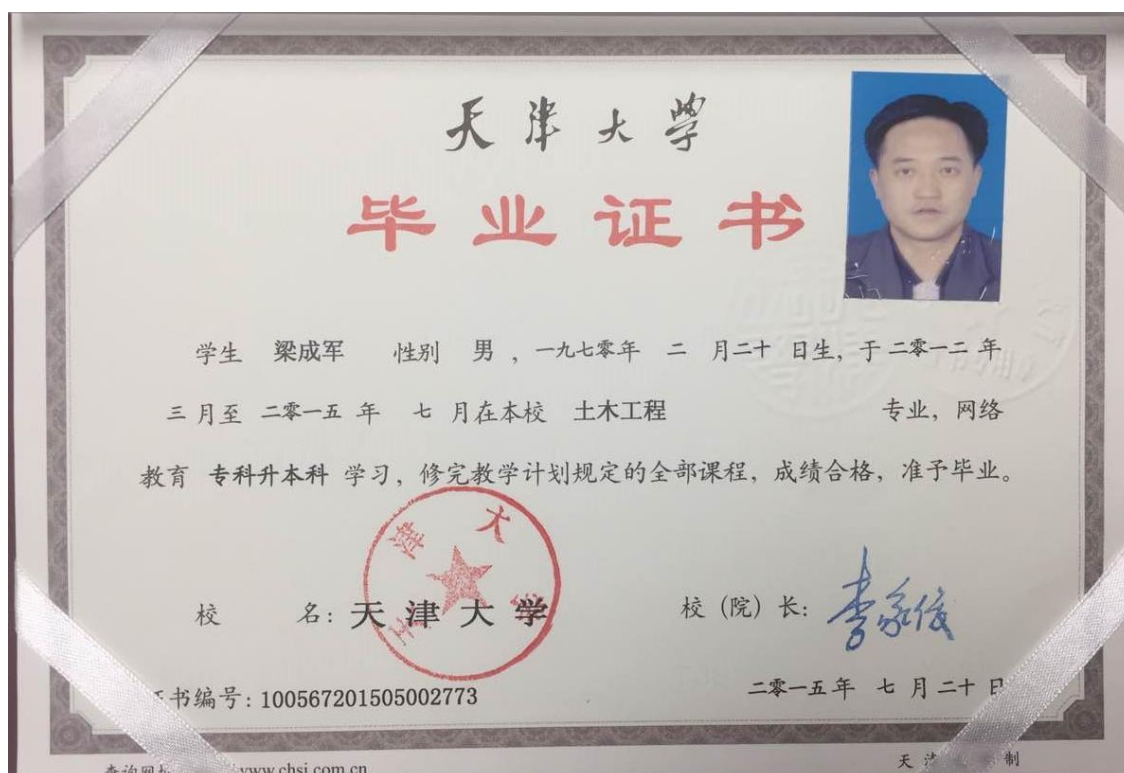 天津大学
毕业证书
学生 梁成军 性别 男 ，一九七零年 二 月二十 日生，于二零一二 年
三 月至 二零一五 年 七 月在本校 土木工程 专业，网络
教育 专科升本科 学习，修完教学计划规定的全部课程，成绩合格，准予毕业。
天津大学
校 名：天津大学 校（院）长：李家俊
书编号：100567201505002773 二零一五年 七 月二十日
查询网址 www.chsi.com.cn 天津 制